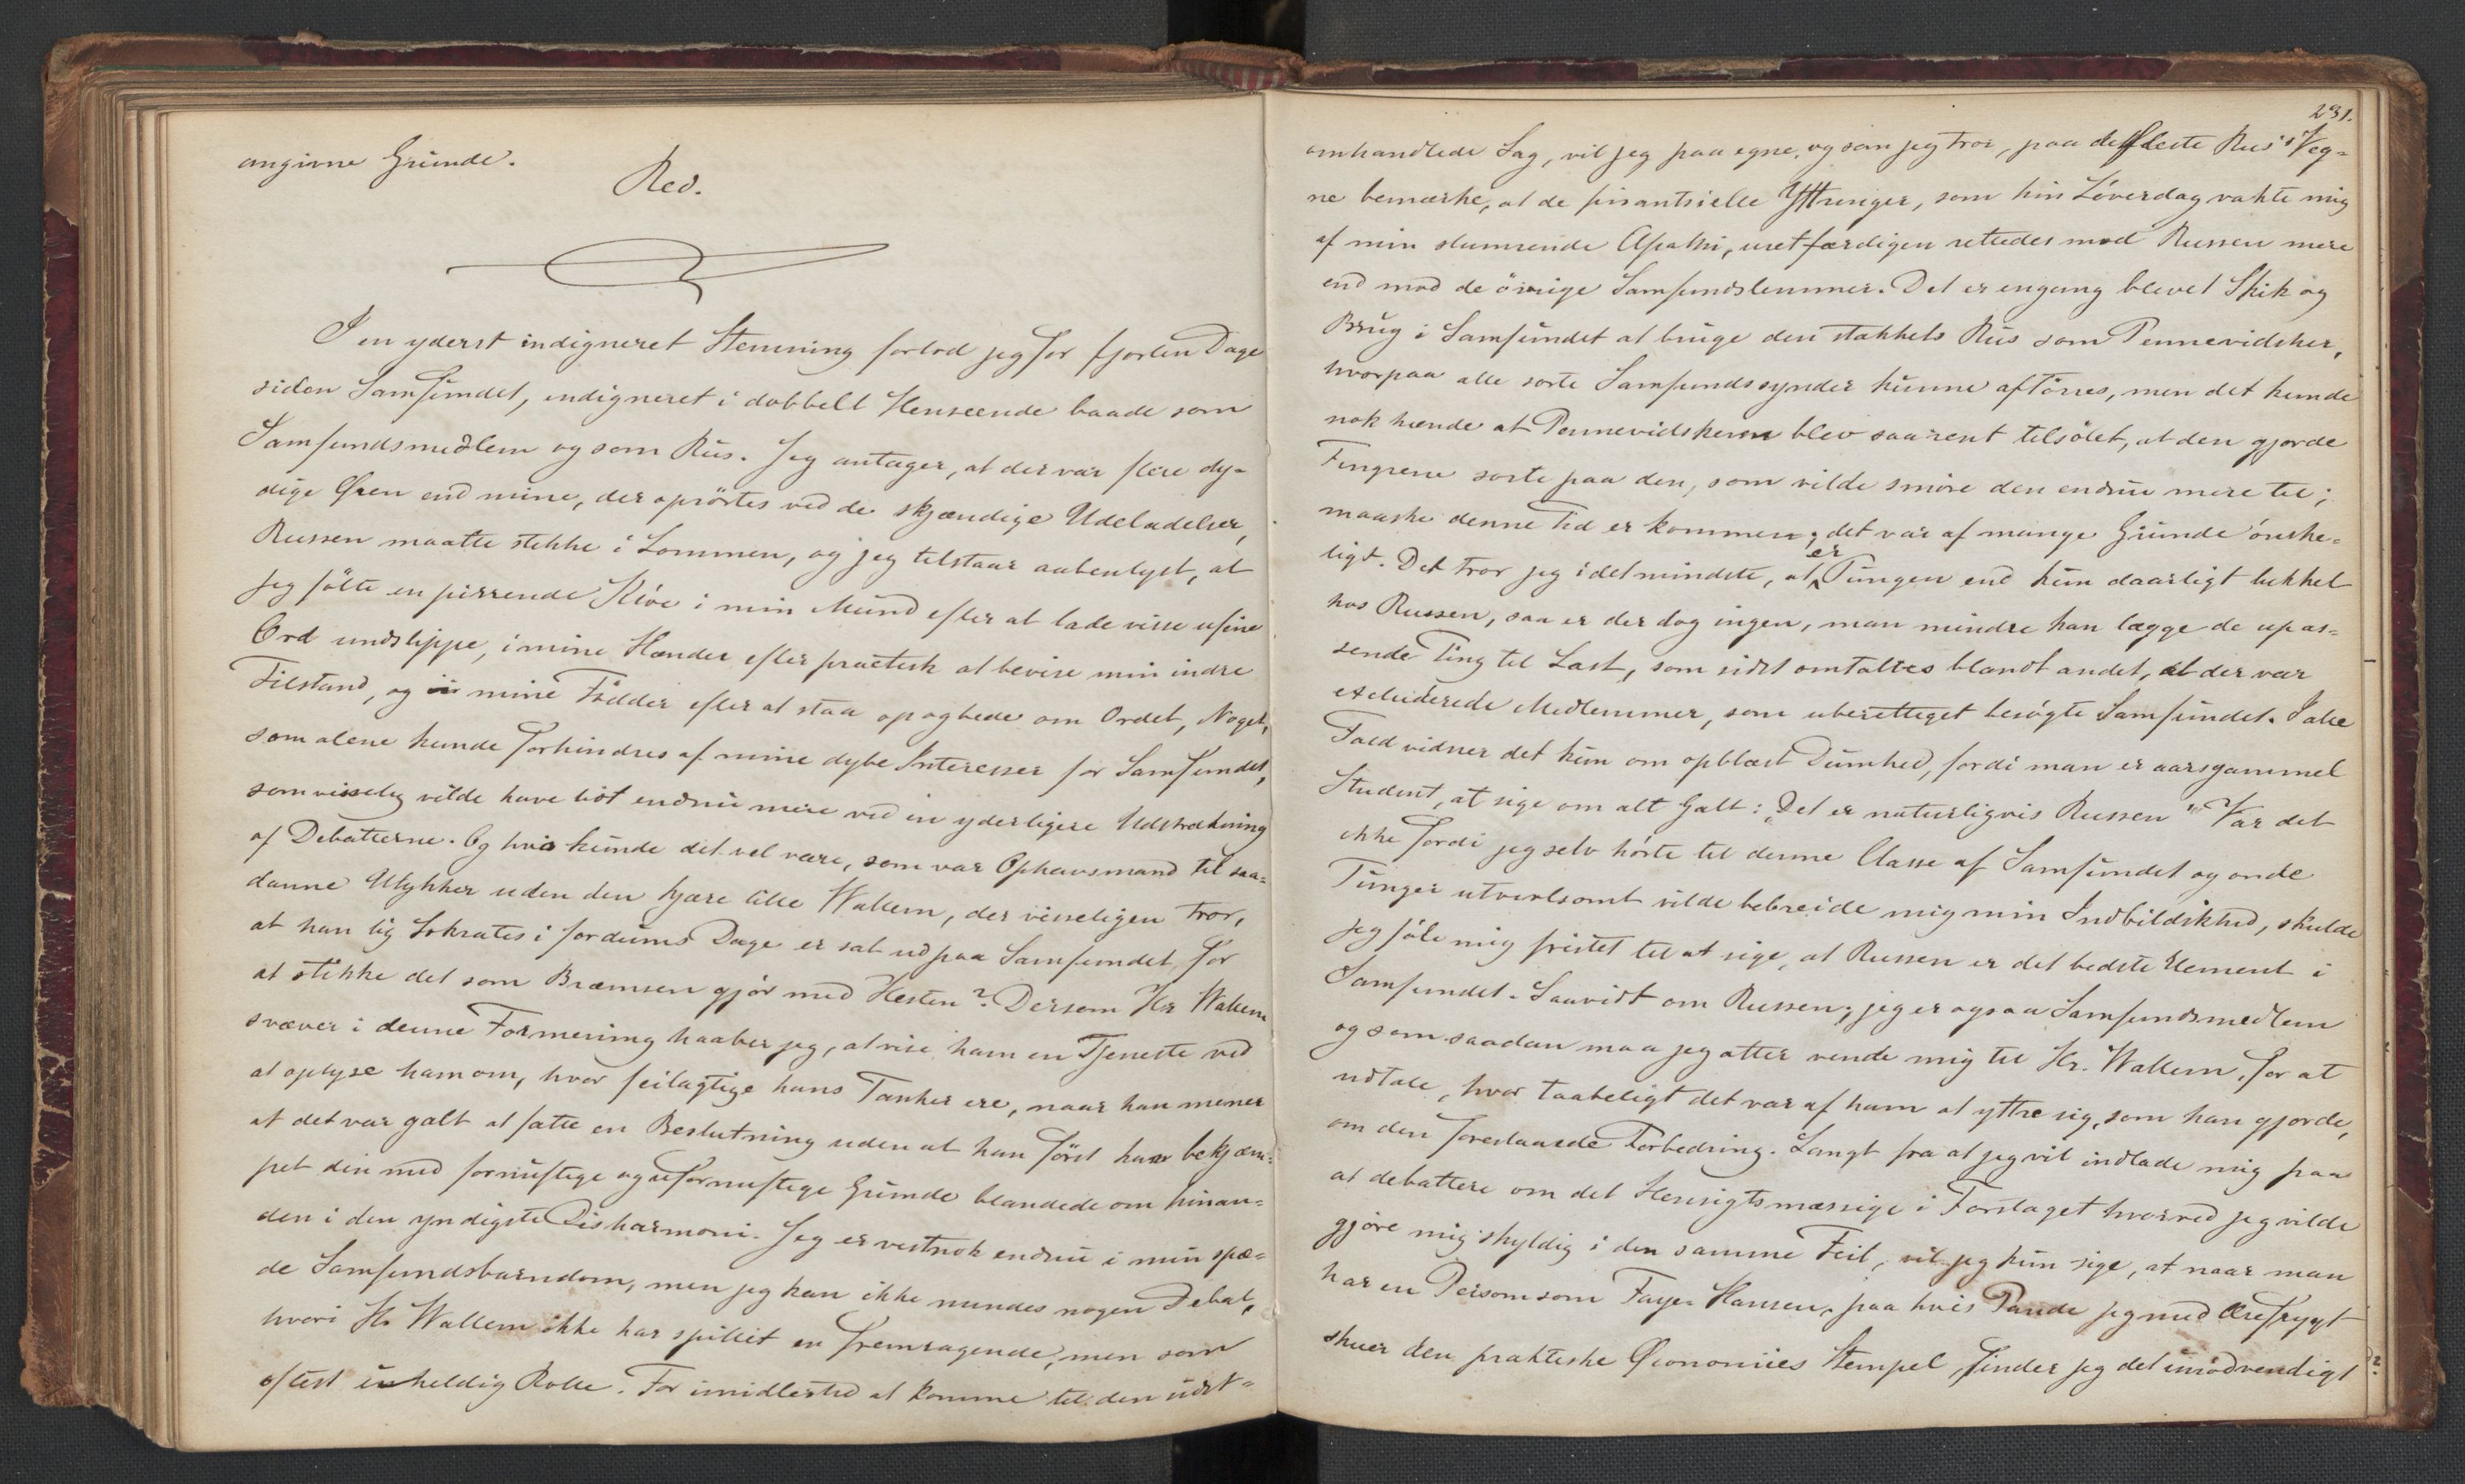 angivne Grunde.
Red.
I en yderst indigneret Stemning forlod jeg for fjorten Dage
siden Samfundet, indigneret i dobbelt Henseende baade som
Samfundsmedlem og som Rus. Jeg antager, at der var flere dy-
dige Øren end mine, der oprörtes ved de skjændige Udeladelser,
Russen maatte stikke i Lommen, og jeg tilstaar aabenlyst, at
jeg fölte en pirrende Klöe i min Mund efter at lade visse ufine
Ord undslippe, i mine Hænder efter practisk at bevise min indre
Tilstand, og i mine Födder efter at staa op og bede om Ordet, Noget,
som alene kunde forhindres af mine dybe Interesser for Samfundet,
som visselig vilde have lidt endnu mere ved en yderligere Udstrækning
af Debatterne. Og hvo kunde det vel være, som var Ophavsmand til saa-
danne Ulykker uden den kjære lille Wallem, der visseligen tror,
at han lig Sokrates i fordums Dage er sat ud paa Samfundet for
at stikke det som Bræmsen gjör med Hesten? Dersom Hr Wallem
svæver i denne Formening haaber jeg, at vise ham en Tjeneste ved
at oplyse ham om, hvor feilagtige hans Tanker ere, naar han mener
at det var galt at fatte en Beslutning uden at han först har bekjæm-
pet den med fornuftige og ufornuftige Grunde blandede om hinan-
den i den yndigste Disharmoni. Jeg er vistnok endnu i min spæ-
de Samfundsbarndom, men jeg kan ikke mindes nogen Debat,
hvori Hr Wallem ikke har spillet en fremragende, men som
oftest uheldig Rolle. For imidlertid at komme til den udst-
231.
omhandlede Sag, vil jeg paa egne, og som jeg tror, paa de fleste Rus's Veg-
ne bemærke, at de finantsielle Yttringer, som hin Löverdag vakte mig
af min slumrende Apathi, uretfærdigen rettedes mod Russen mere
end mod de övrige Samfundslemmer. Det er engang blevet Skik og
Brug i Samfundet at bruge den stakkels Rus som Pennevidsker,
hvorpaa alle sorte Samfundssynder kunne aftörres, men det kunde
nok hænde at Pennevidskeren blev saa rent tilsölet, at den gjorde
Fingrene sorte paa den, som vilde smöre den endnu mere til;
maaske denne Tid er kommen; det var af mange Grunde önske-
ligt. Det tror jeg i det mindste, at er Tungen end kun daarligt lukket
hos Russen, saa er der dog ingen, man mindre kan lægge de upas-
sende Ting til Last, som sidst omtaltes blandt andet, at der var
excluderede Medlemmer, som uberettiget besögte Samfundet. I alle
Fald vidner det kun om opblæst Dumhed, fordi man er aarsgammel
Student, at sige om alt Galt: "Det er naturligvis Russen" Var det
ikke fordi jeg selv hörte til denne Classe af Samfundet og onde
Tunger utvivlsomt vilde bebreide mig min Indbildskhed, skulde
jeg föle mig fristet til at sige, at Russen er det bedste Element i
Samfundet. Saavidt om Russen; jeg er ogsaa Samfundsmedlem
og som saadan maa jeg atter vende mig til Hr. Wallem, for at
udtale, hvor taabeligt det var af ham at yttre sig, som han gjorde,
om den foreslaaede Forbedring. Langt fra at jeg vil indlade mig paa
at debattere om det Hensigtsmæssige i Forslaget hvorved jeg vilde
gjöre mig skyldig i den samme Feil, vil jeg kun sige, at naar man
har en Person som Faye Hansen, paa hvis Pande jeg med Ærefrygt
skuer den praktiske Øconomies Stempel, finder jeg det unödvendigt